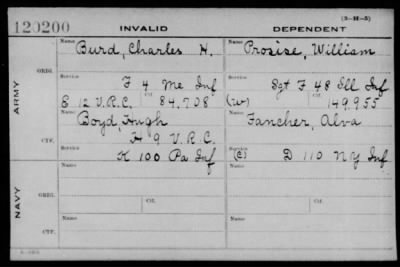 (3-H-5)
120200
INVALID
DEPENDENT
ARMY
ORIG.
Name
Burd, Charles H.
Name
Prosise, William
Service
F 4 Me Inf
Service
Sgt F 48 Ill Inf
E 12 V.R.C.
Ctf.
84,708
(W)
Ctf.
149955
CTF.
Name
Boyd, Hugh
H 9 V.R.C.
K 100 Pa Inf
Name
Fancher, Alva
(C) D 110 NY Inf
NAVY
ORIG.
Name
Name
Service
Service
Ctf.
Ctf.
CTF.
Name
Name